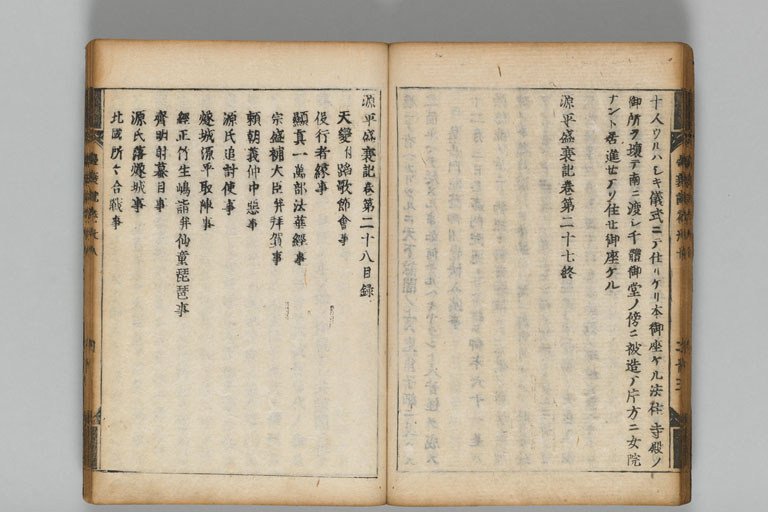 十人ウルハシキ儀式ニテ仕リケリ本御座ケル法住寺殿ノ
御所ヲ壊テ南ニ渡シ千體御堂ノ傍ニ被造テ片方ニ女院
ナント居進セテソ住セ御座ケル
源平盛衰記卷第二十七終
源平盛衰記卷第二十八目録
天變付踏歌節會事
役行者縁事
顯真一萬部法華經事
宗盛補大臣并拜賀事
頼朝義仲中惡事
源氏追討使事
燧城源平取陣事
經正竹生嶋詣并仙童琵琶事
齊明射蟇目事
源氏落燧城事
北國所々合戰事